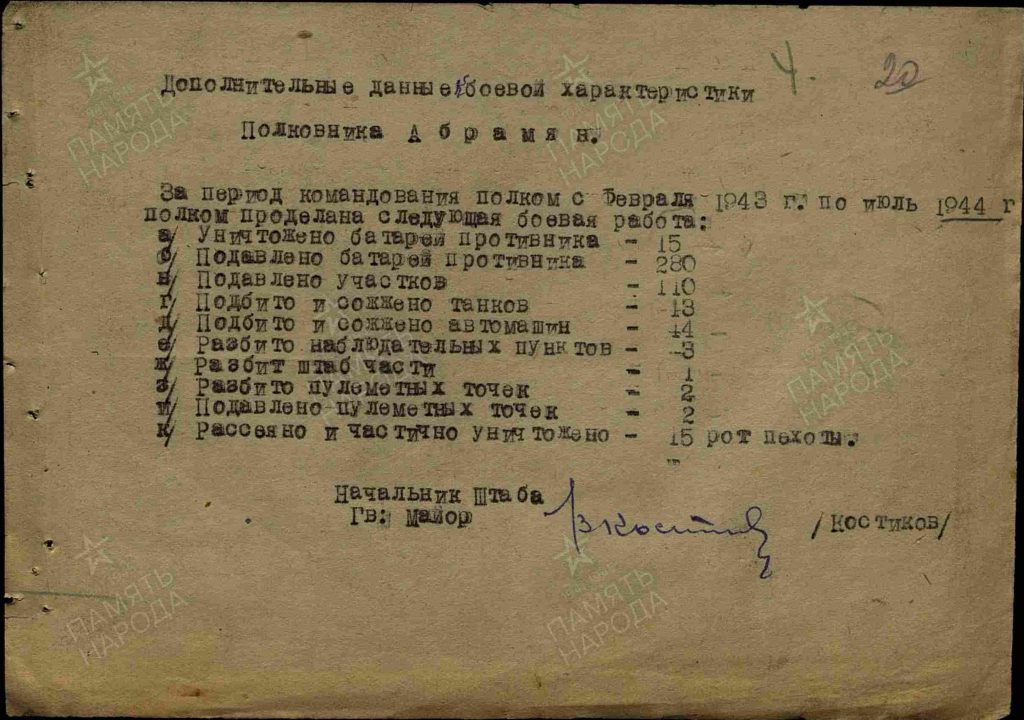 4. 20
Дополнительные данные к боевой характеристики
Полковника А б р а м я н.
За период командования полком с Февраля 1943 г. по июль 1944 г
полком проделана следующая боевая работа:
а/ Уничтожено батарей противника - 15
б/ Подавлено батарей противника - 280
в/ Подавлено участков - 110
г/ Подбито и сожжено танков - 13
д/ Подбито и сожжено автомашин - 44
е/ Разбито наблюдательных пунктов - 3
ж/ Разбит штаб части - 1
з/ Разбито пулеметных точек - 2
и/ Подавлено пулеметных точек - 2
к/ Рассеяно и частично уничтожено - 15 рот пехоты.
Начальник Штаба
Гв: майор /Костиков/
ПАМЯТЬ НАРОДА
ПАМЯТЬ НАРОДА
ПАМЯТЬ НАРОДА
ПАМЯТЬ НАРОДА
ПАМЯТЬ НАРОДА